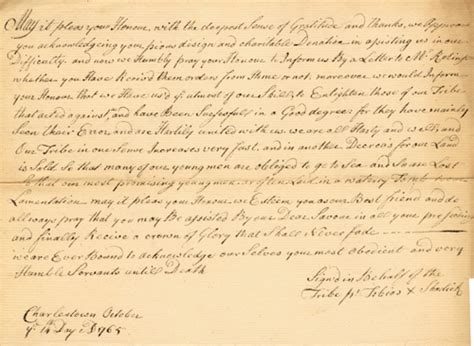 May it pleas your Honour, with the deepest Sense of Gratitude and thanks, we Approve
you acknowledging your pious design and charitable Donation in assisting us in our
Difficulty and now we Humbly pray your Honour to Inform us By a Letter to Mr
whether you Have Receivd them orders from Home or not; moreover we would Inform
your Honour that we Have used ye utmost of our Skill to Enlighten those of our Tribe
that acted against, and have Been Successfull in a Good degree; for they have mainly
Seen their Error, and are Hartily united with us. we are all Harty and well and
Our Tribe in one Sense Increases very fast, and in another Decreas for our Land
is Sold. So that many of our young men are obliged to go to Sea and So are Lost
that our most promising young men often Laid in a watery Tomb
Lamentation may it pleas your Honour we Esteem you as our Best friend and do
allways pray that you may Be assisted By our Dear Saviour in all your
and finally Recive a crown of Glory that Shall Never fade
we are Ever Bound to acknowledge our Selves your most obedient and very
Humble Servants untill Death
Signd in Behalf of the
Tribe pr Tobias
Charlestown October
Day 1765